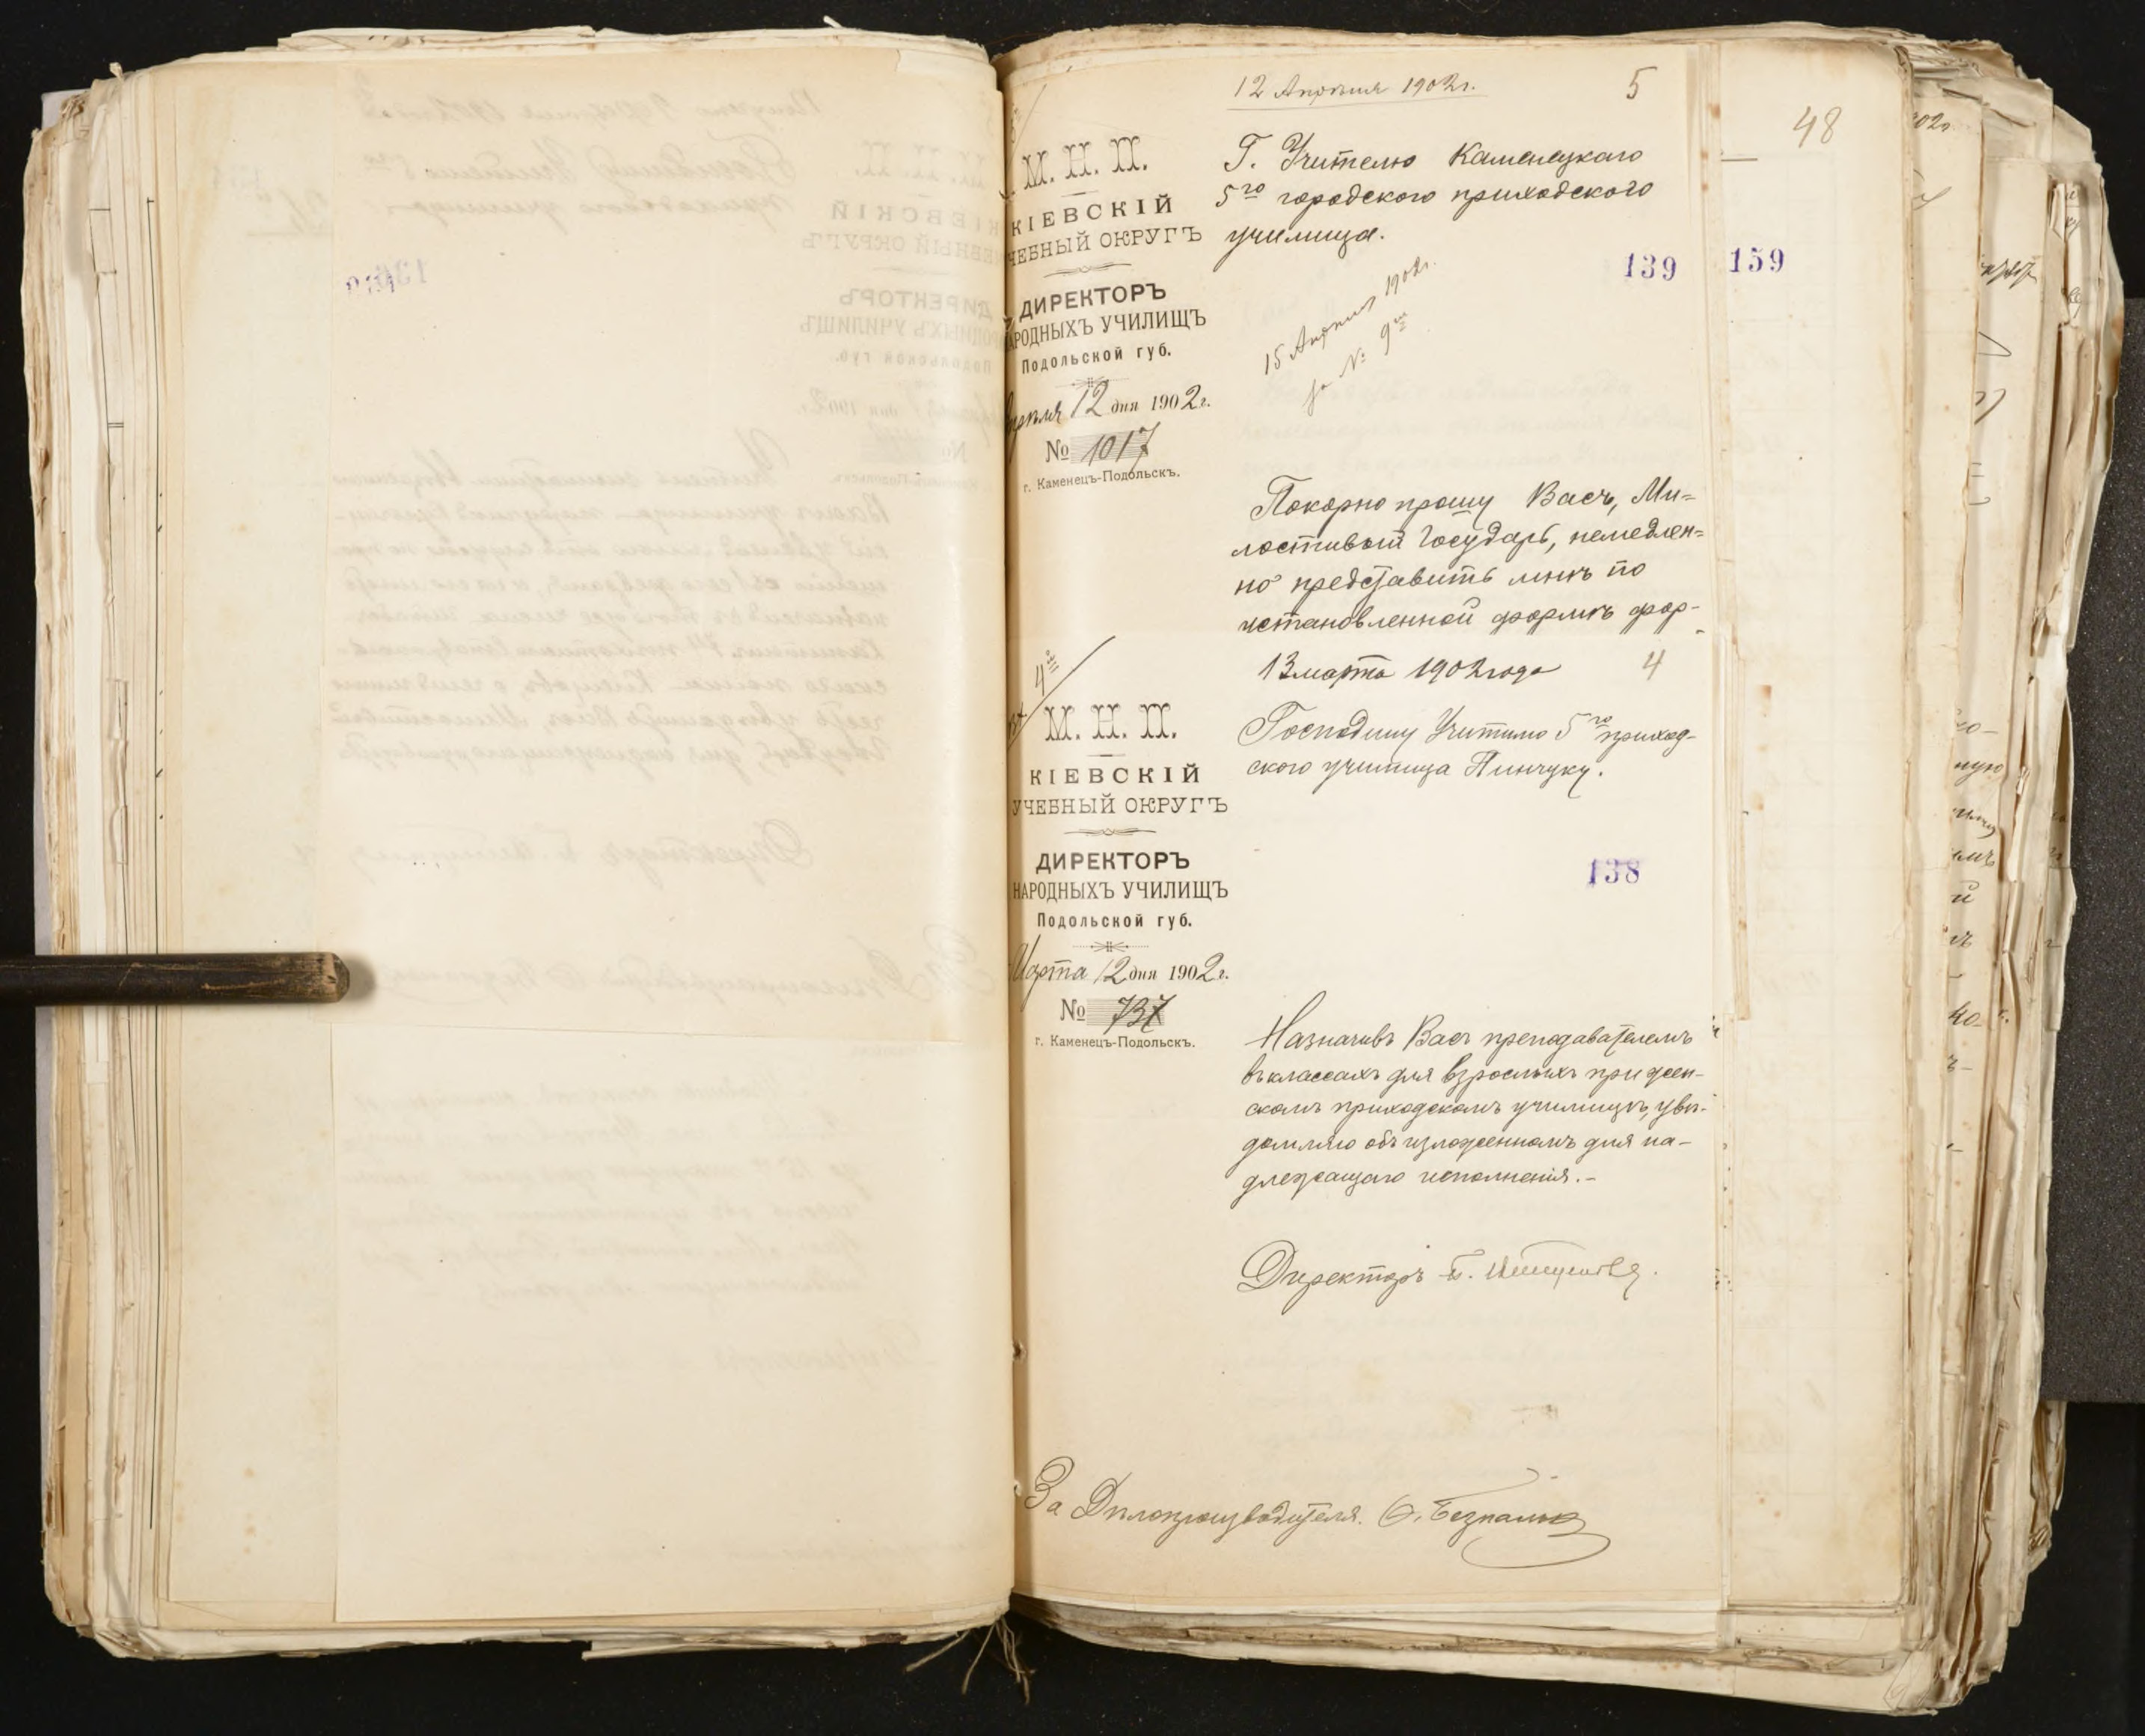 12 Апрѣля 1902г. 5
48
М. Н. П.
КІЕВСКІЙ
УЧЕБНЫЙ ОКРУГЪ
ДИРЕКТОРЪ
НАРОДНЫХЪ УЧИЛИЩЪ
Подольской губ.
Апрѣля 12 дня 1902г.
№ 1017
г. Каменецъ-Подольскъ.
Г. Учителю Каменецкаго
5го городского приходского
училища.
139 159
15 Апрѣля 1902г.
за № 9м
Покорно прошу Васъ, Ми=
лостивый Государь, немедлен=
но представить мнѣ по
установленной формѣ фор-
13 марта 1902 года 4
М. Н. П.
КІЕВСКІЙ
УЧЕБНЫЙ ОКРУГЪ
ДИРЕКТОРЪ
НАРОДНЫХЪ УЧИЛИЩЪ
Подольской губ.
Марта 12 дня 1902г.
№ 737
г. Каменецъ-Подольскъ.
Господину Учителю 5го приход-
ского училища Пинчуку.
138
Назначивъ Васъ преподавателемъ
въ классахъ для взрослыхъ при жен-
скомъ приходскомъ училищѣ, увѣ-
домляю объ изложенномъ для на-
длежащаго исполненія.-
Директоръ
За Дѣлопроизводителя.